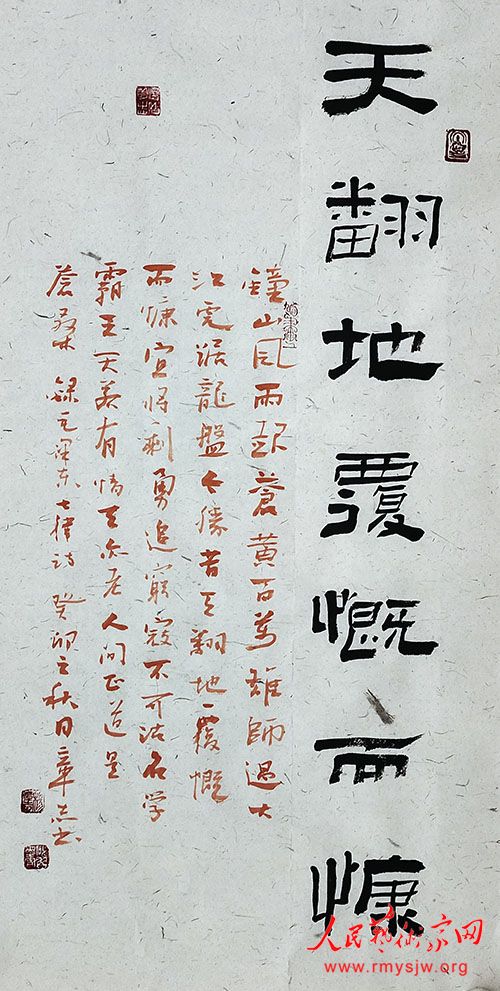 天翻地覆慨而慷
鐘山风雨起蒼黄百萬雄師過大
江虎踞龍盤今勝昔天翻地覆慨
而慷宜將剩勇追窮寇不可沽名学
霸王天若有情天亦老人间正道是
蒼桑 錄毛澤东七律诗 癸卯之秋月章
人民艺术家网
www.rmysjw.org